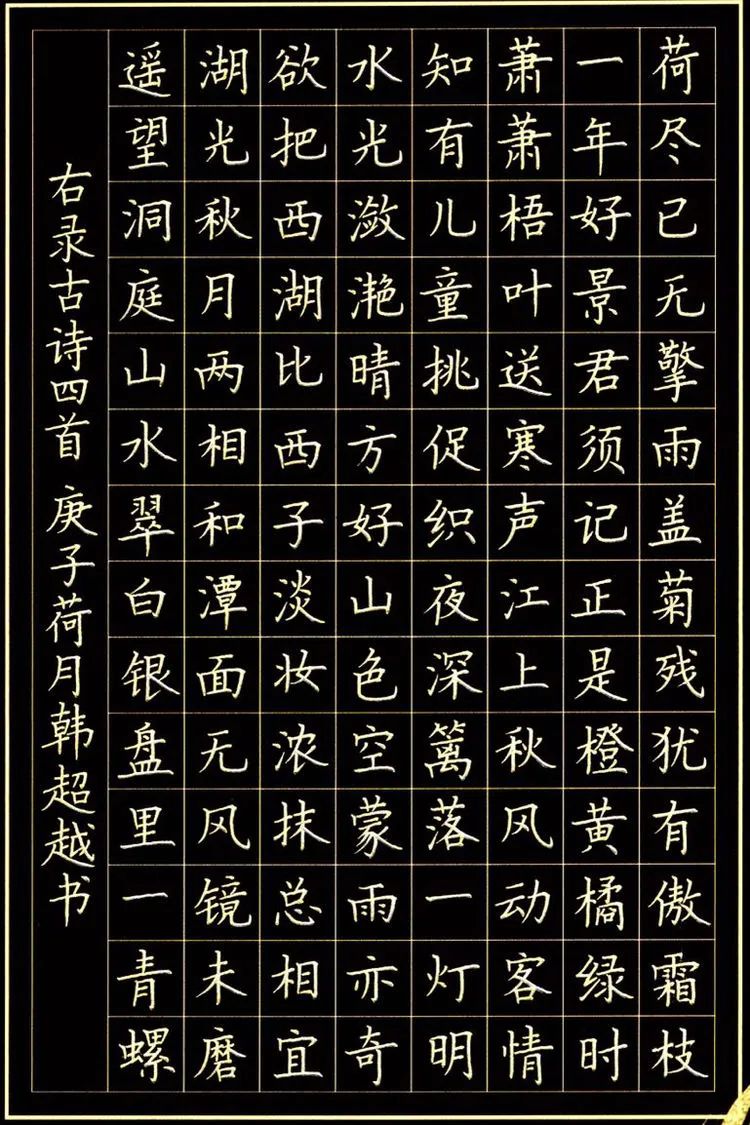 荷尽已无擎雨盖菊残犹有傲霜枝
一年好景君须记正是橙黄橘绿时
萧萧梧叶送寒声江上秋风动客情
知有儿童挑促织夜深篱落一灯明
水光潋滟晴方好山色空蒙雨亦奇
欲把西湖比西子淡妆浓抹总相宜
湖光秋月两相和潭面无风镜未磨
遥望洞庭山水翠白银盘里一青螺
右录古诗四首 庚子荷月韩超越书